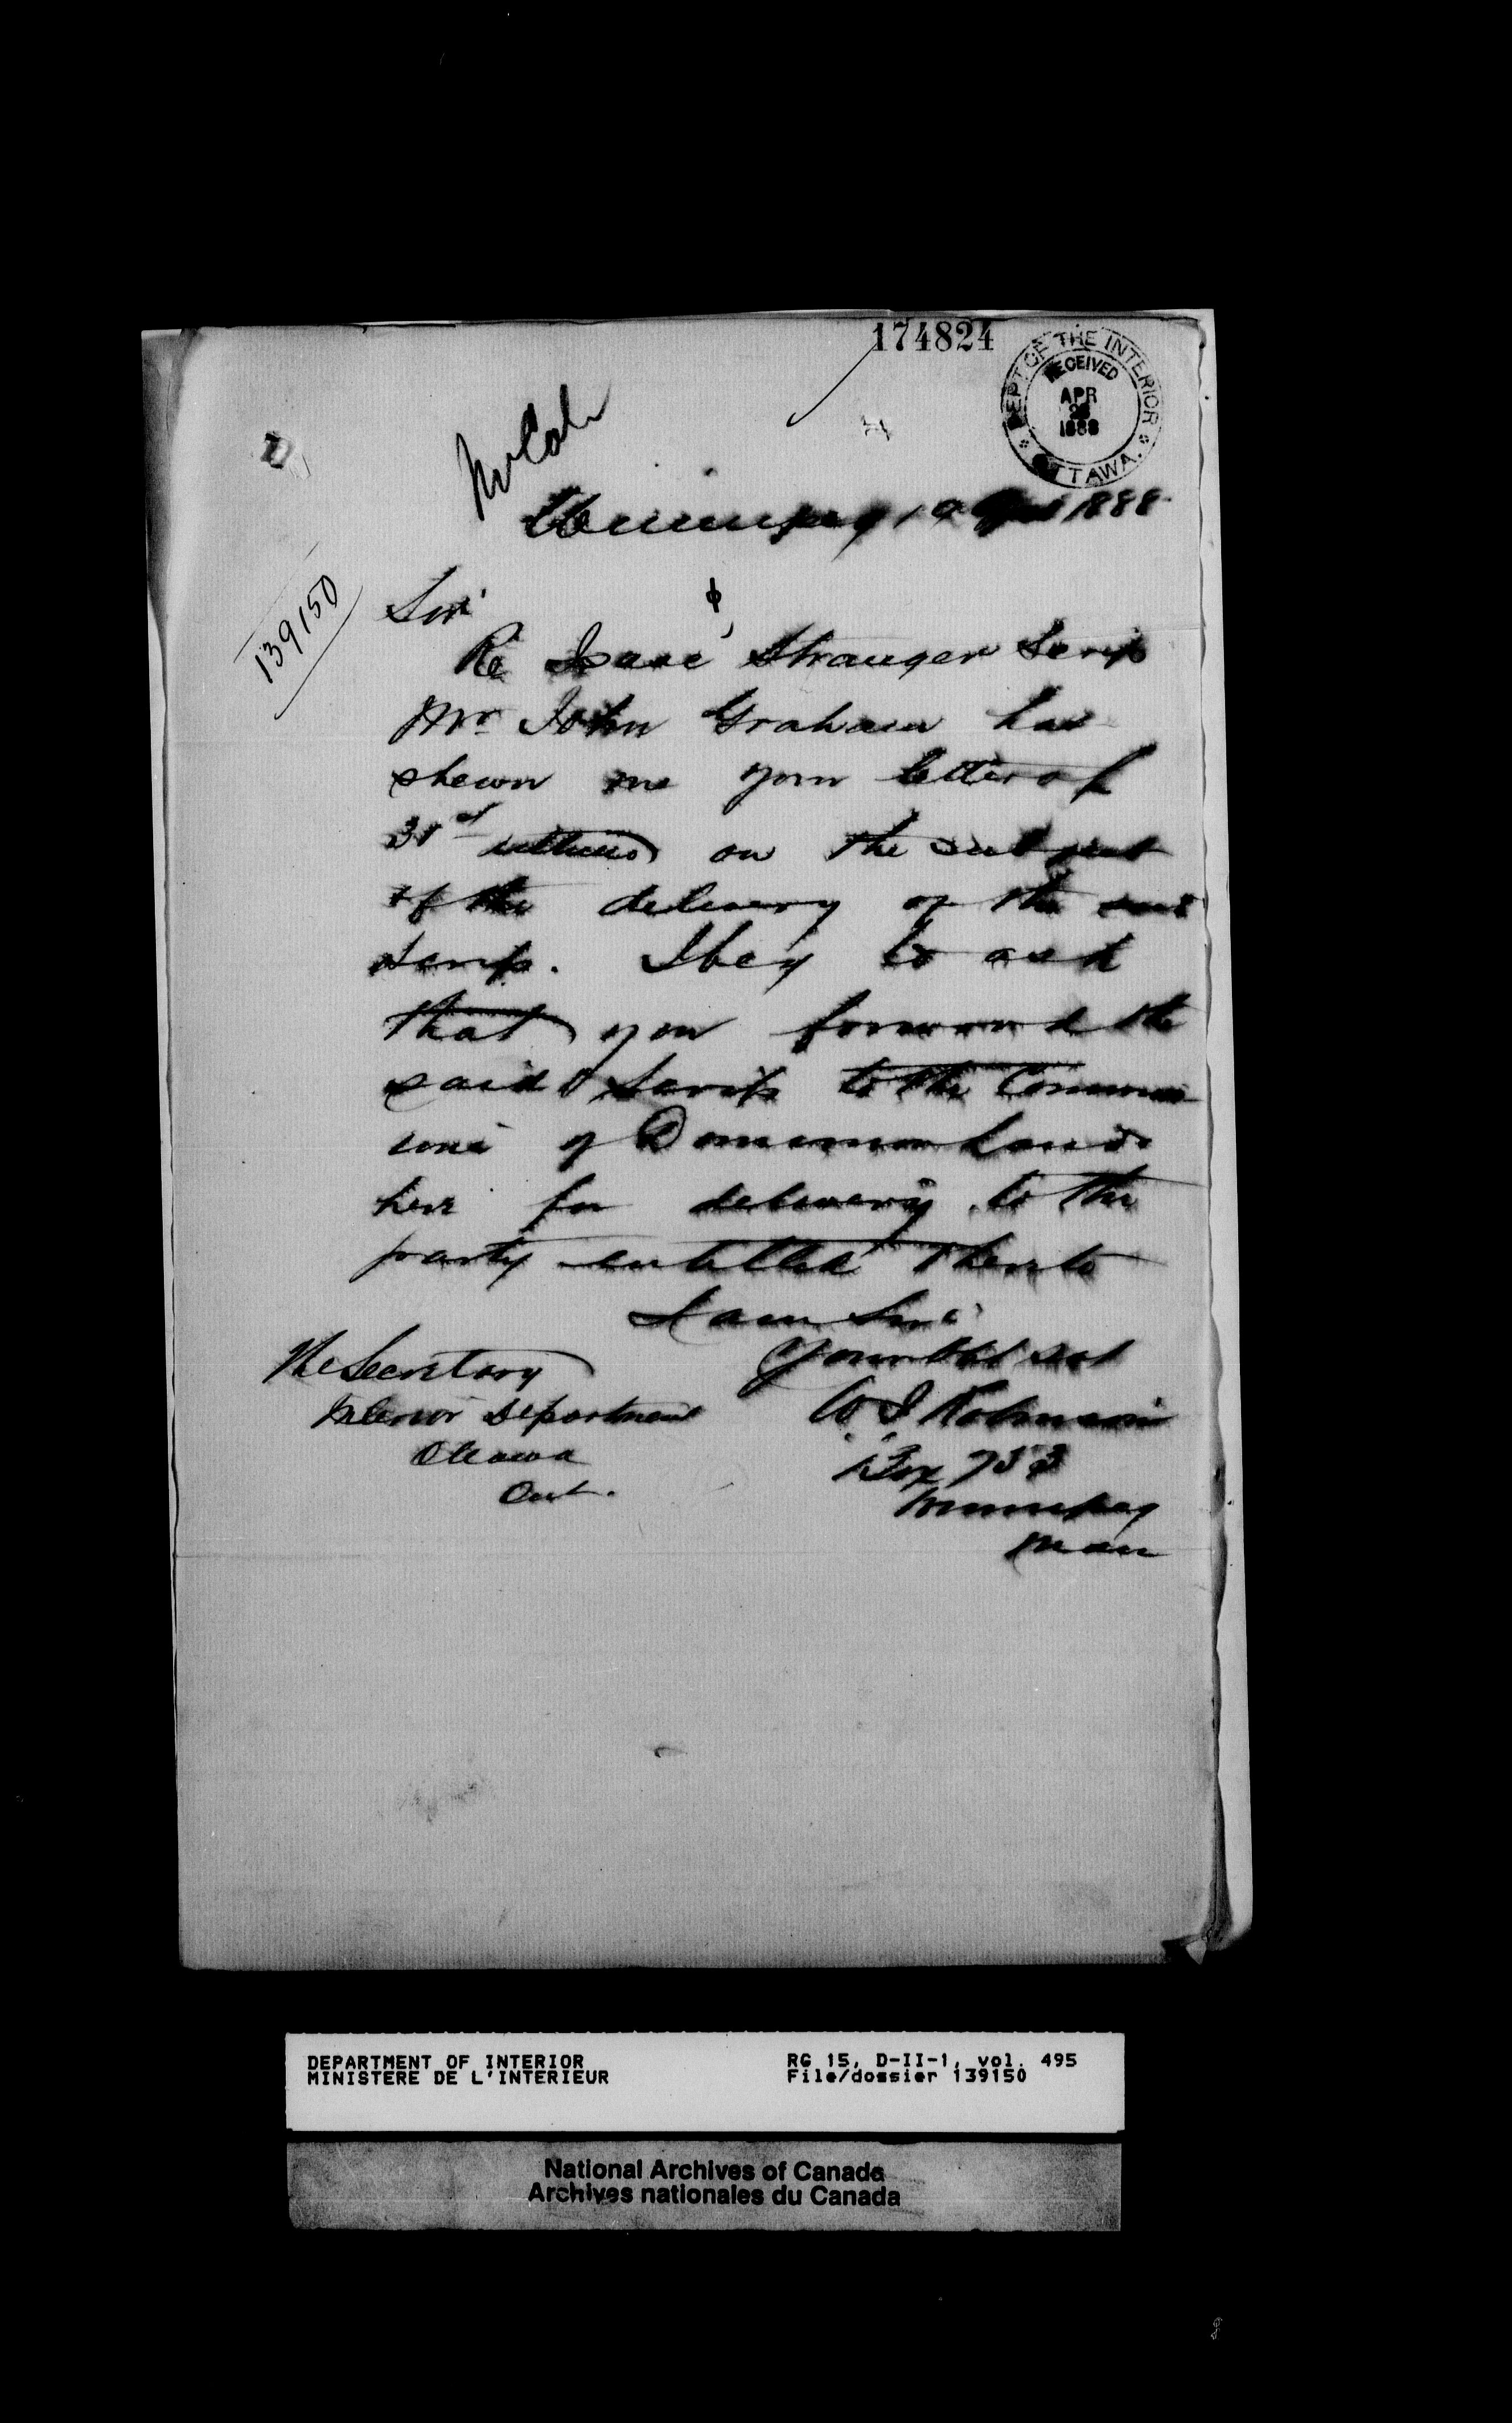 174824
DEPT OF THE INTERIOR
RECEIVED
APR
1888
OTTAWA.
Winnipeg 19 April 1888
139150
Sir
Re Isaac Stranger Scrip
Mr John Graham has
shewn me your letter of
31st ultimo on the subject
of the delivery of the said
Scrip. I beg to ask
that you forward the
said Scrip to the Commis
sioner of Dominion Lands
here for delivery to the
party entitled thereto
I am Sir
Your Obt Svt
The Secretary
Interior Department
Ottawa
Ont.
W J Robinson
Box 753
Winnipeg
Man
DEPARTMENT OF INTERIOR
MINISTERE DE L'INTERIEUR
RG 15, D-II-1, vol. 495
File/dossier 139150
National Archives of Canada
Archives nationales du Canada